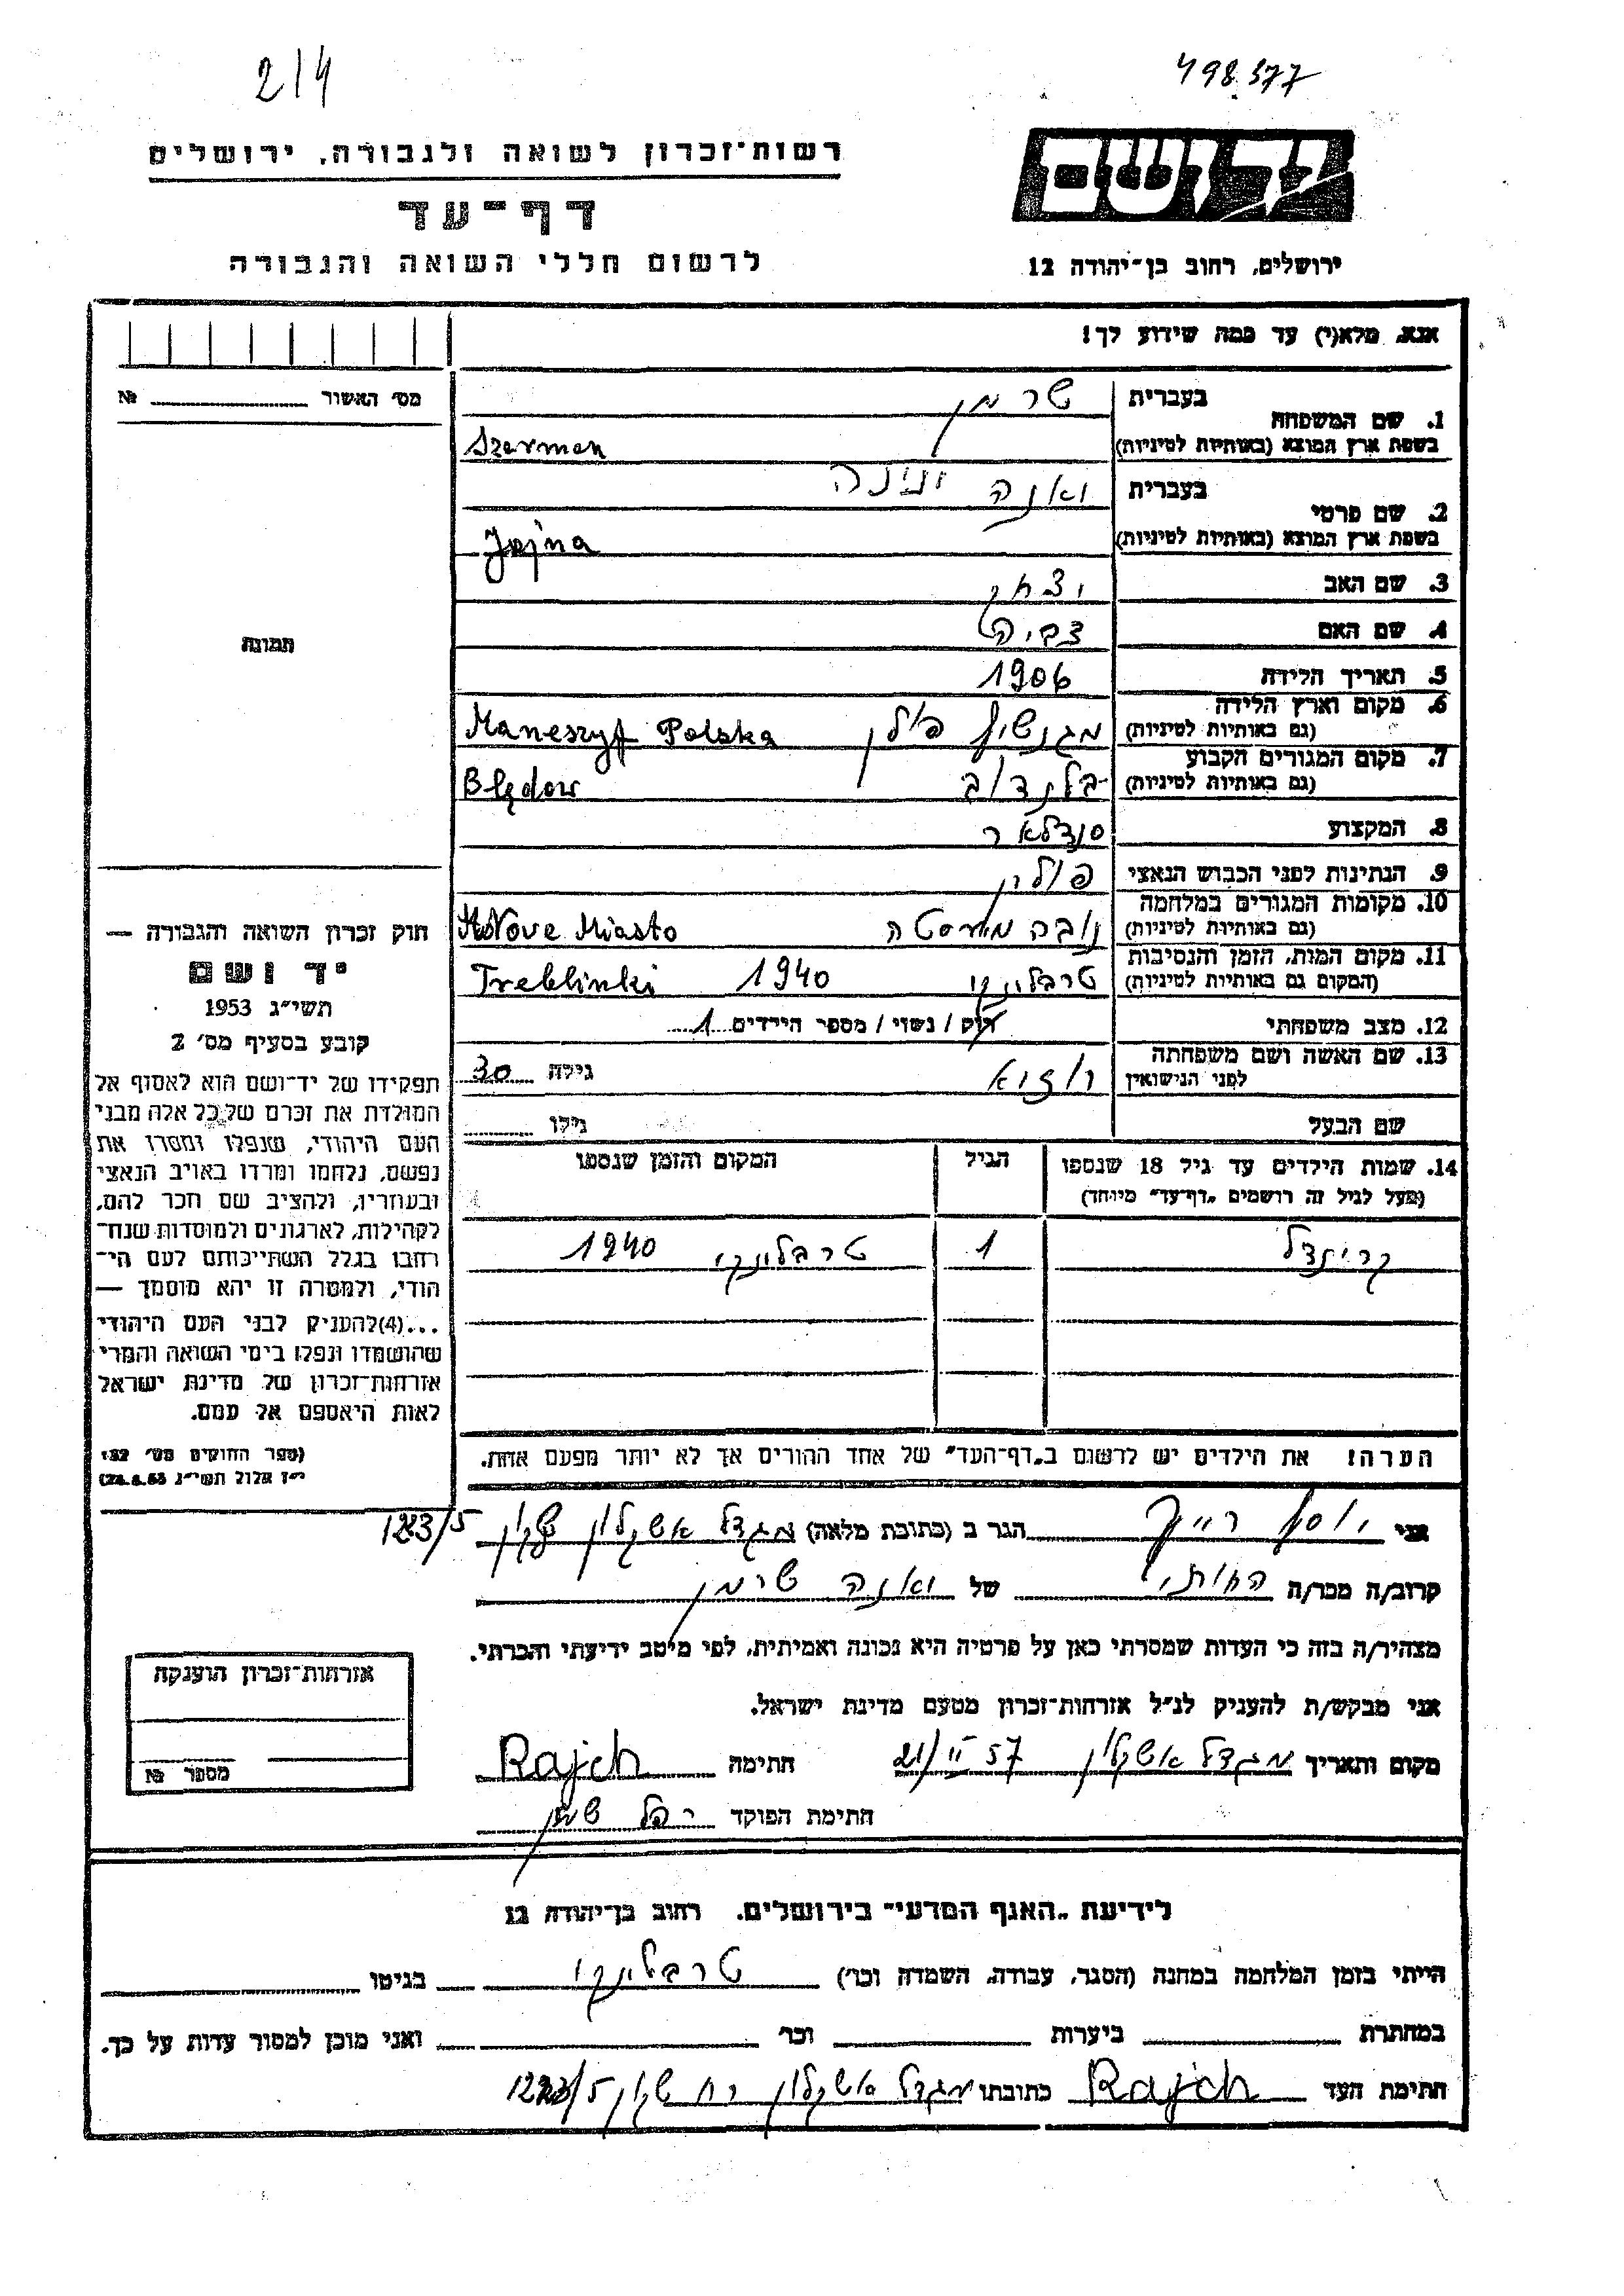 2/4
498377
רשות־זכרון לשואה ולגבורה, ירושלים
דף־עד
לרשום חללי השואה והגבורה
יד ושם
ירושלים, רחוב בן־יהודה 12
אנא, מלא(י) עד כמה שידוע לך!
מס׳ האשור № 
1. שם המשפחה בעברית שרמן
בשפת ארץ המוצא (באותיות לטיניות) Szerman
2. שם פרטי בעברית ואנה יונינה
בשפת ארץ המוצא (באותיות לטיניות) Jojna
3. שם האב יצחק
4. שם האם צביה
5. תאריך הלידה 1906
6. מקום וארץ הלידה (גם באותיות לטיניות) מגנשוף פולן Maneszyf Polska
7. מקום המגורים הקבוע (גם באותיות לטיניות) בלנדוב Błędow
8. המקצוע סנדלאר
9. הנתינות לפני הכבוש הנאצי פולין
10. מקומות המגורים במלחמה (גם באותיות לטיניות) נובה מיאסטה Nove Miasto
11. מקום המות, הזמן והנסיבות (המקום גם באותיות לטיניות) טרבלינקי 1940 Treblinki
12. מצב משפחתי רווק / נשוי / מספר הילדים 1
13. שם האשה ושם משפחתה לפני הנישואין רוזיא גילה 30
שם הבעל גילו
14. שמות הילדים עד גיל 18 שנספו (מעל לגיל זה רושמים „דף־עד” מיוחד) הגיל המקום והזמן שנספו
קריינדל 1 טרבלינקי 1940
הערה! את הילדים יש לרשום ב„דף־העד” של אחד ההורים אך לא יותר מפעם אחת.
תמונה
חוק זכרון השואה והגבורה —
יד ושם
תשי״ג 1953
קובע בסעיף מס׳ 2
תפקידו של יד־ושם הוא לאסוף אל
המולדת את זכרם של כל אלה מבני
העם היהודי, שנפלו ומסרו את
נפשם, נלחמו ומרדו באויב הנאצי
ובעוזריו, ולהציב שם וזכר להם,
לקהילות, לארגונים ולמוסדות שנח־
רחבו בגלל השתייכותם לעם הי־
הודי, ולמטרה זו יהא מוסמך —
...(4)להעניק לבני העם היהודי
שהושמדו ונפלו בימי השואה והמרי
אזרחות־זכרון של מדינת ישראל
לאות היאספם אל עמם.
(ספר החוקים מס׳ 132,
י״ז אלול תשי״ג 28.8.53)
אני יוסף רייך הגר ב (כתובת מלאה) מגדל אשקלון שקון 123/5
קרוב/ה מכר/ה החותי של ואנה שרמן
מצהיר/ה בזה כי העדות שמסרתי כאן על פרטיה היא נכונה ואמיתית, לפי מיטב ידיעתי והכרתי.
אני מבקש/ת להעניק לנ״ל אזרחות־זכרון מטעם מדינת ישראל.
מקום ותאריך מגדל אשקלון 21/II 57 חתימה Rajch
חתימת הפוקד
אזרחות־זכרון הוענקה
מספר №
לידיעת „האגף המדעי” בירושלים, רחוב בן־יהודה 12
הייתי בזמן המלחמה במחנה (הסגר, עבודה, השמדה וכו׳) טרבלינקי בגיטו
במחתרת ביערות וכו׳ ואני מוכן למסור עדות על כך.
חתימת העד Rajch כתובתו מגדל אשקלון רח שקון 1223/5